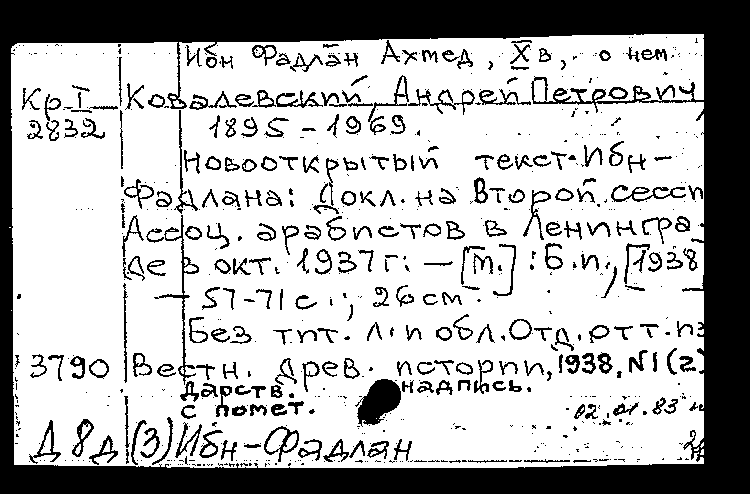 Ибн Фадлāн Ахмед, X в, о нем
Кр I Ковалевский, Андрей Петрович
2832 1895 – 1969.
Новооткрытый текст Ибн –
Фадлана: Докл. на Второй сесси
Ассоц. арабистов в Ленингра
де в окт. 1937 г. – [М.] : Б.и., [1938
– 57-71 с.; 26 см.
Без тит. л. и обл. Отд. отт. из
3790 Вестн. древ. истории, 1938, N1(2)
дарств. надпись.
с помет. 02.01.83
Д8д (3) Ибн-Фадлан